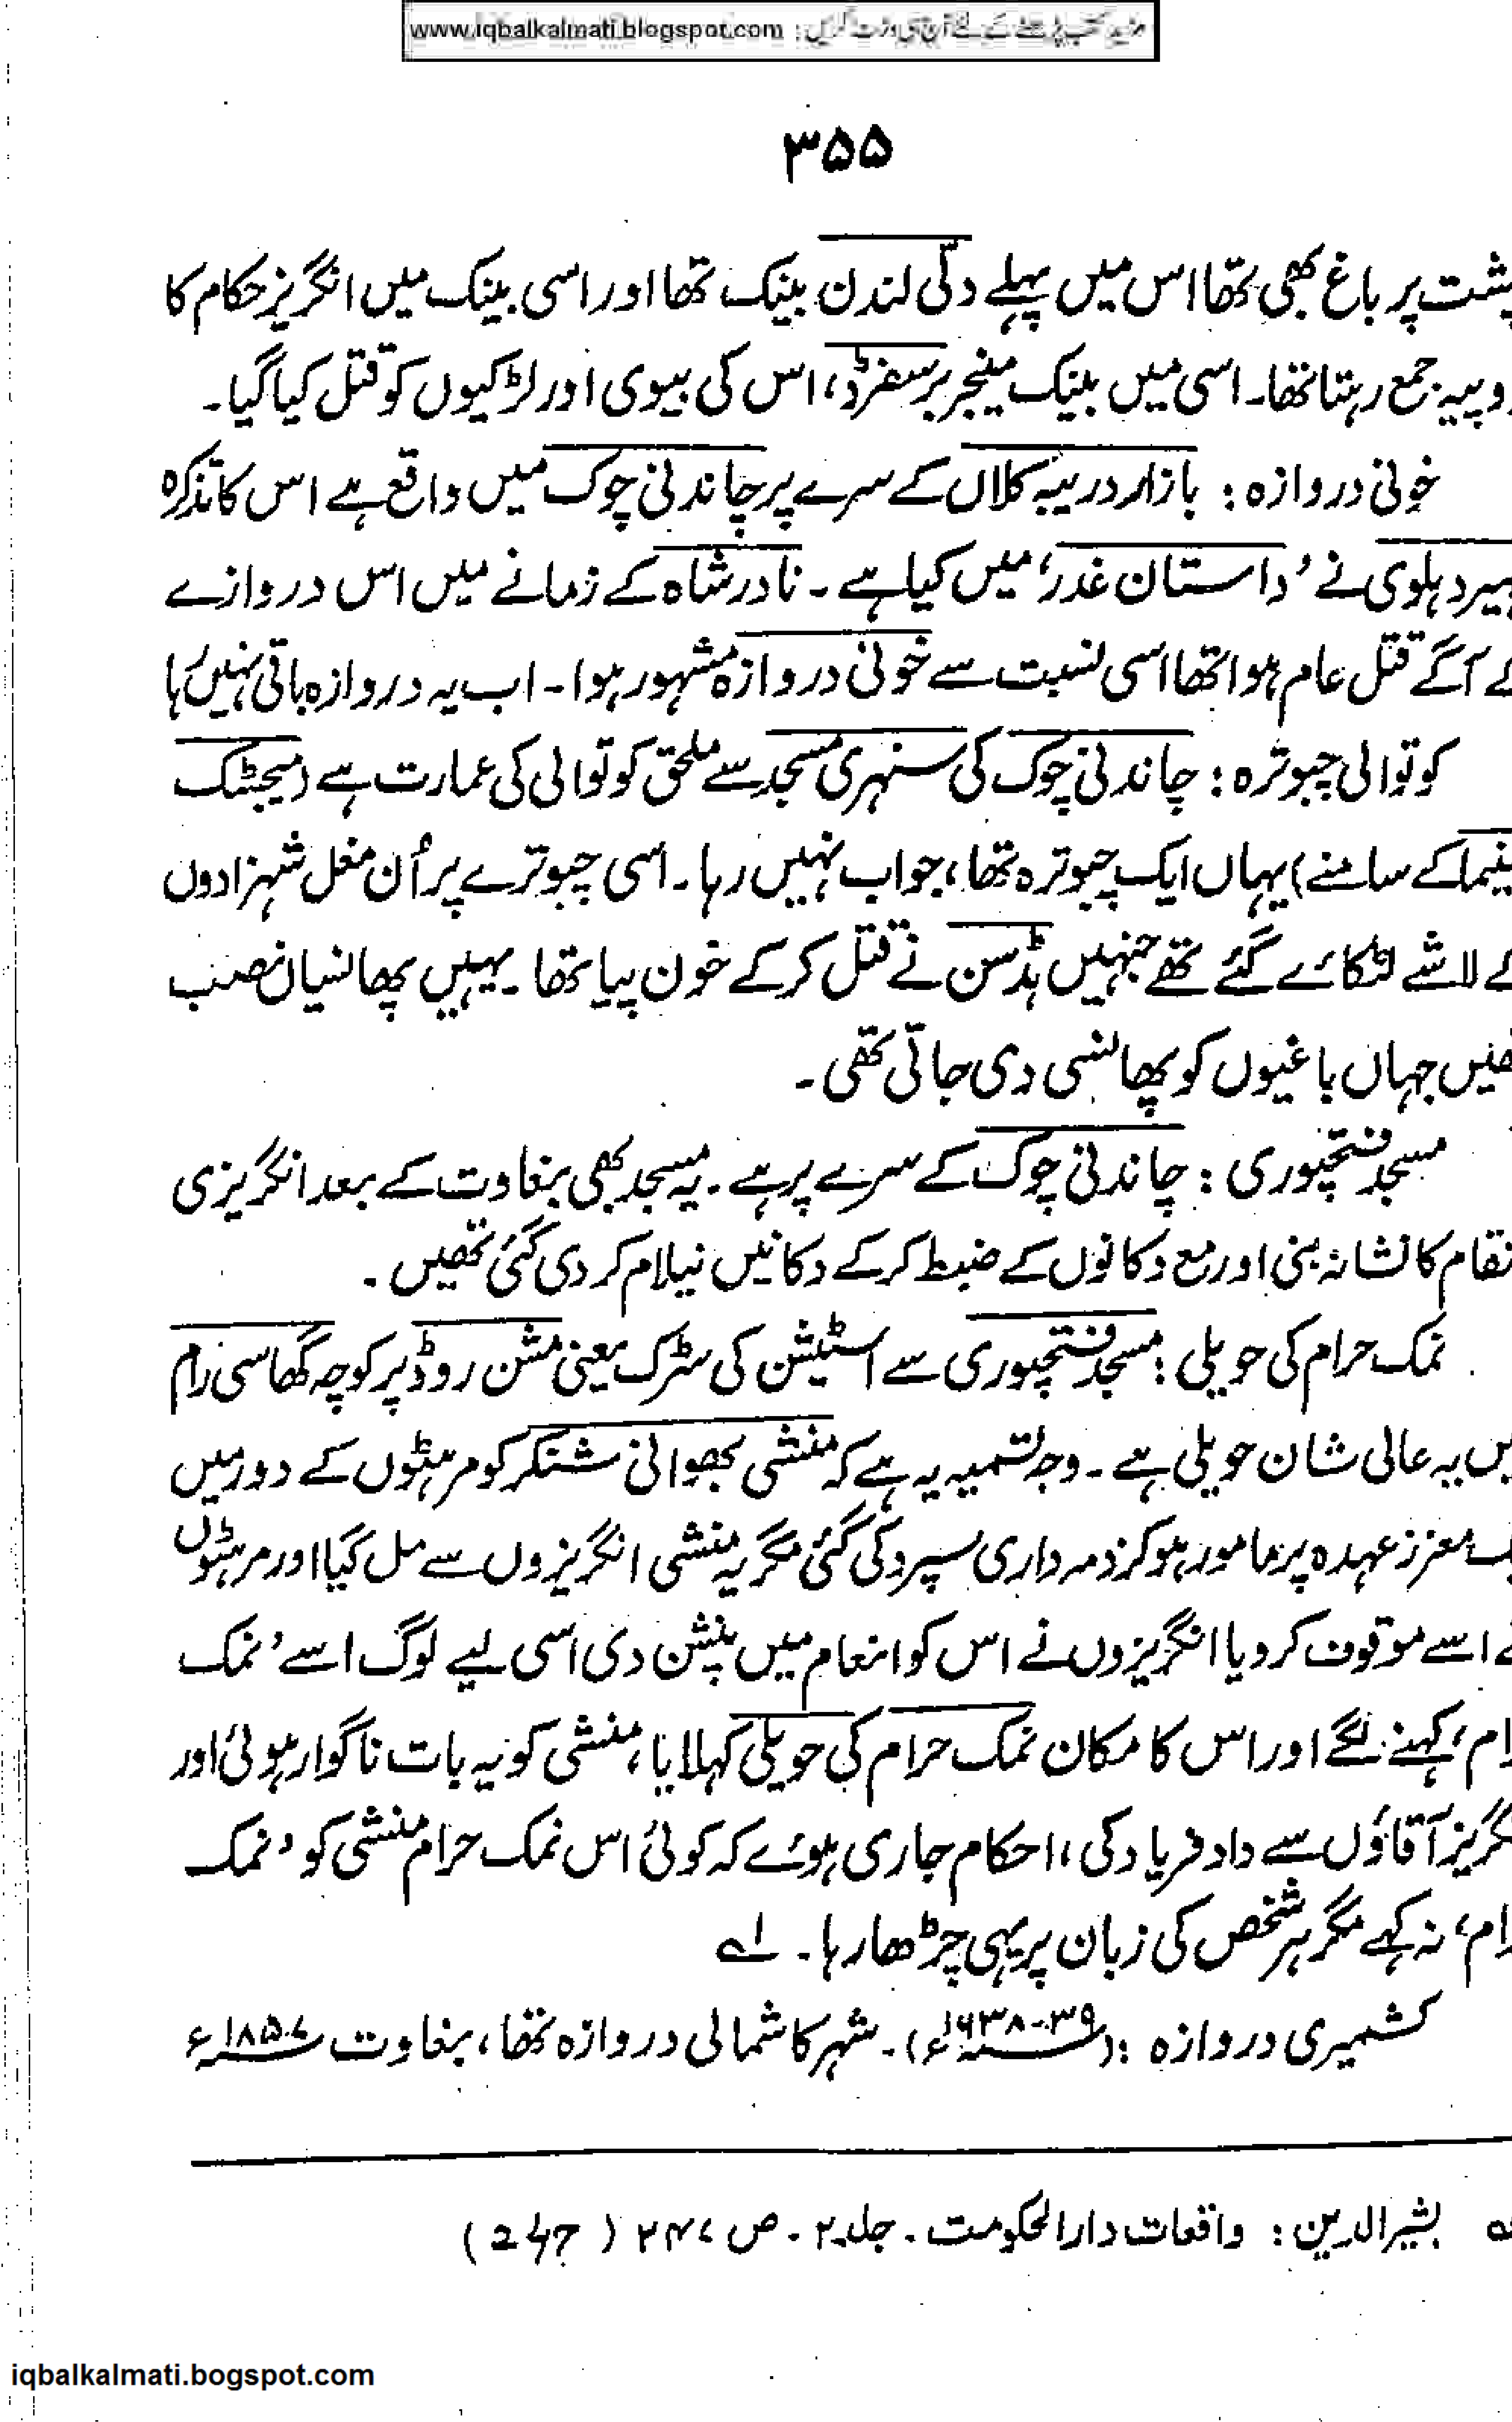 مزید کتب پڑھنے کے لئے آج ہی وزٹ کریں : www.iqbalkalmati.blogspot.com
۳۵۵
پشت پر باغ بھی تھا اس میں پہلے دلّی لندن بینک تھا اور اسی بینک میں انگریز حکام کا
روپیہ جمع رہتا تھا۔ اسی میں بینک مینجر برسفرڈ، اس کی بیوی اور لڑکیوں کو قتل کیا گیا۔
خونی دروازہ : بازار دریبہ کلاں کے سرے پر چاندنی چوک میں واقع ہے اس کا تذکرہ
ہیر دہلوی نے ’داستان غدر‘ میں کیا ہے ۔ نادر شاہ کے زمانے میں اس دروازے
کے آگے قتل عام ہوا تھا اسی نسبت سے خونی دروازہ مشہور ہوا ۔ اب یہ دروازہ باقی نہیں رہا
کوتوالی چبوترہ : چاندنی چوک کی سنہری مسجد سے ملحق کوتوالی کی عمارت ہے (میجٹک
ینما کے سامنے) یہاں ایک چبوترہ تھا ، جو اب نہیں رہا ۔ اسی چبوترے پر اُن مغل شہزادوں
کے لاشے لٹکائے گئے تھے جنہیں ہڈسن نے قتل کر کے خون پیا تھا ۔ یہیں پھانسیاں نصب
تھیں جہاں باغیوں کو پھانسی دی جاتی تھی ۔
مسجد فتحپوری : چاندنی چوک کے سرے پر ہے ۔ یہ مسجد بھی بغاوت کے بعد انگریزی
نتقام کا نشانہ بنی اور مع دکانوں کے ضبط کر کے دکانیں نیلام کر دی گئی تھیں ۔
نمک حرام کی حویلی : مسجد فتحپوری سے اسٹیشن کی سڑک یعنی مشن روڈ پر کوچہ گھاسی رام
یں یہ عالی شان حویلی ہے ۔ وجہ تسمیہ یہ ہے کہ منشی بھوانی شنکر کو مرہٹوں کے دور میں
یک معزز عہدہ پر مامور ہو کر ذمہ داری سپرد کی گئی مگر یہ منشی انگریزوں سے مل گیا اور مرہٹوں
نے اسے موقوف کر دیا انگریزوں نے اس کو انعام میں پنشن دی اسی لیے لوگ اسے ’نمک
رام‘ کہنے لگے اور اس کا مکان نمک حرام کی حویلی کہلایا ، منشی کو یہ بات ناگوار ہوئی اور
نگریز آقاؤں سے داد فریاد کی ، احکام جاری ہوئے کہ کوئی اس نمک حرام منشی کو ’نمک
رام‘ نہ کہے مگر ہر شخص کی زبان پر یہی چڑھا رہا ۔ لے
کشمیری دروازہ : (۳۹-۱۶۳۸ء) ۔ شہر کا شمالی دروازہ تھا ، بغاوت ۱۸۵۷ء
لہ بشیر الدین : واقعات دارالحکومت ۔ جلد ۲ ۔ ص ۲۴۷ ( 247 )
iqbalkalmati.bogspot.com